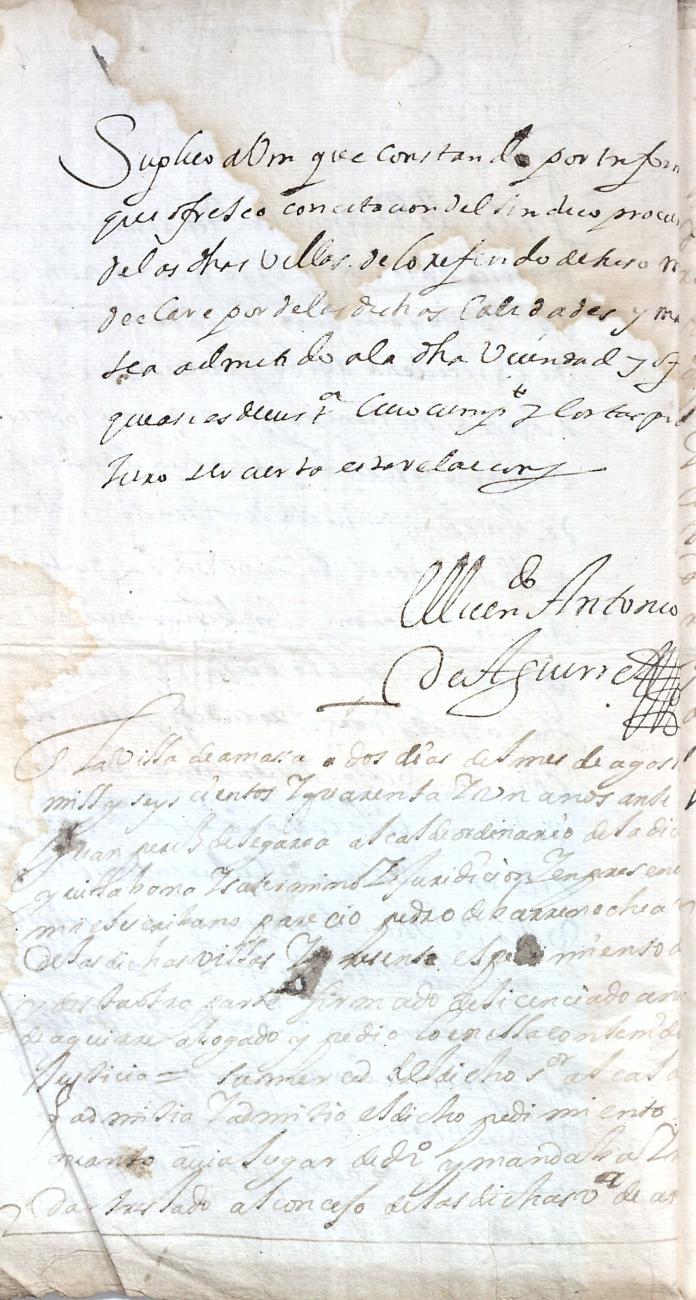 Suplico a Vm que constando por infor
que ofresco con citacion del sindico procu
de las dhas Villas. de lo referido de hico
declare por de las dichas Calidades y ma
sea admitido a la dha Vecindad y
que asi es de just.ª Cuio cumpt.
Juro ser cierta esta relacion
El licen.do Antonio
De Aguirre
La villa de amassa a dos dias del mes de agos
mill y seys cientos y quarenta y un anos ante
Juan perez de legarra alcalde ordinario de la dic
y villabona y su termino y juridicion y en presen
mi el escribano parecio pedro de barrenechea
de las dichas villas y presento el pedimiento
y desta otra parte firmado del licenciado an
de aguirre abogado y pedio lo en ella contem.do
Justicia = su merced del dicho s.or alcal
admitia y admitio el dicho pedimiento
quanto avia lugar de dr.o y mandaba
dar treslado al consejo de las dichas v.as de a